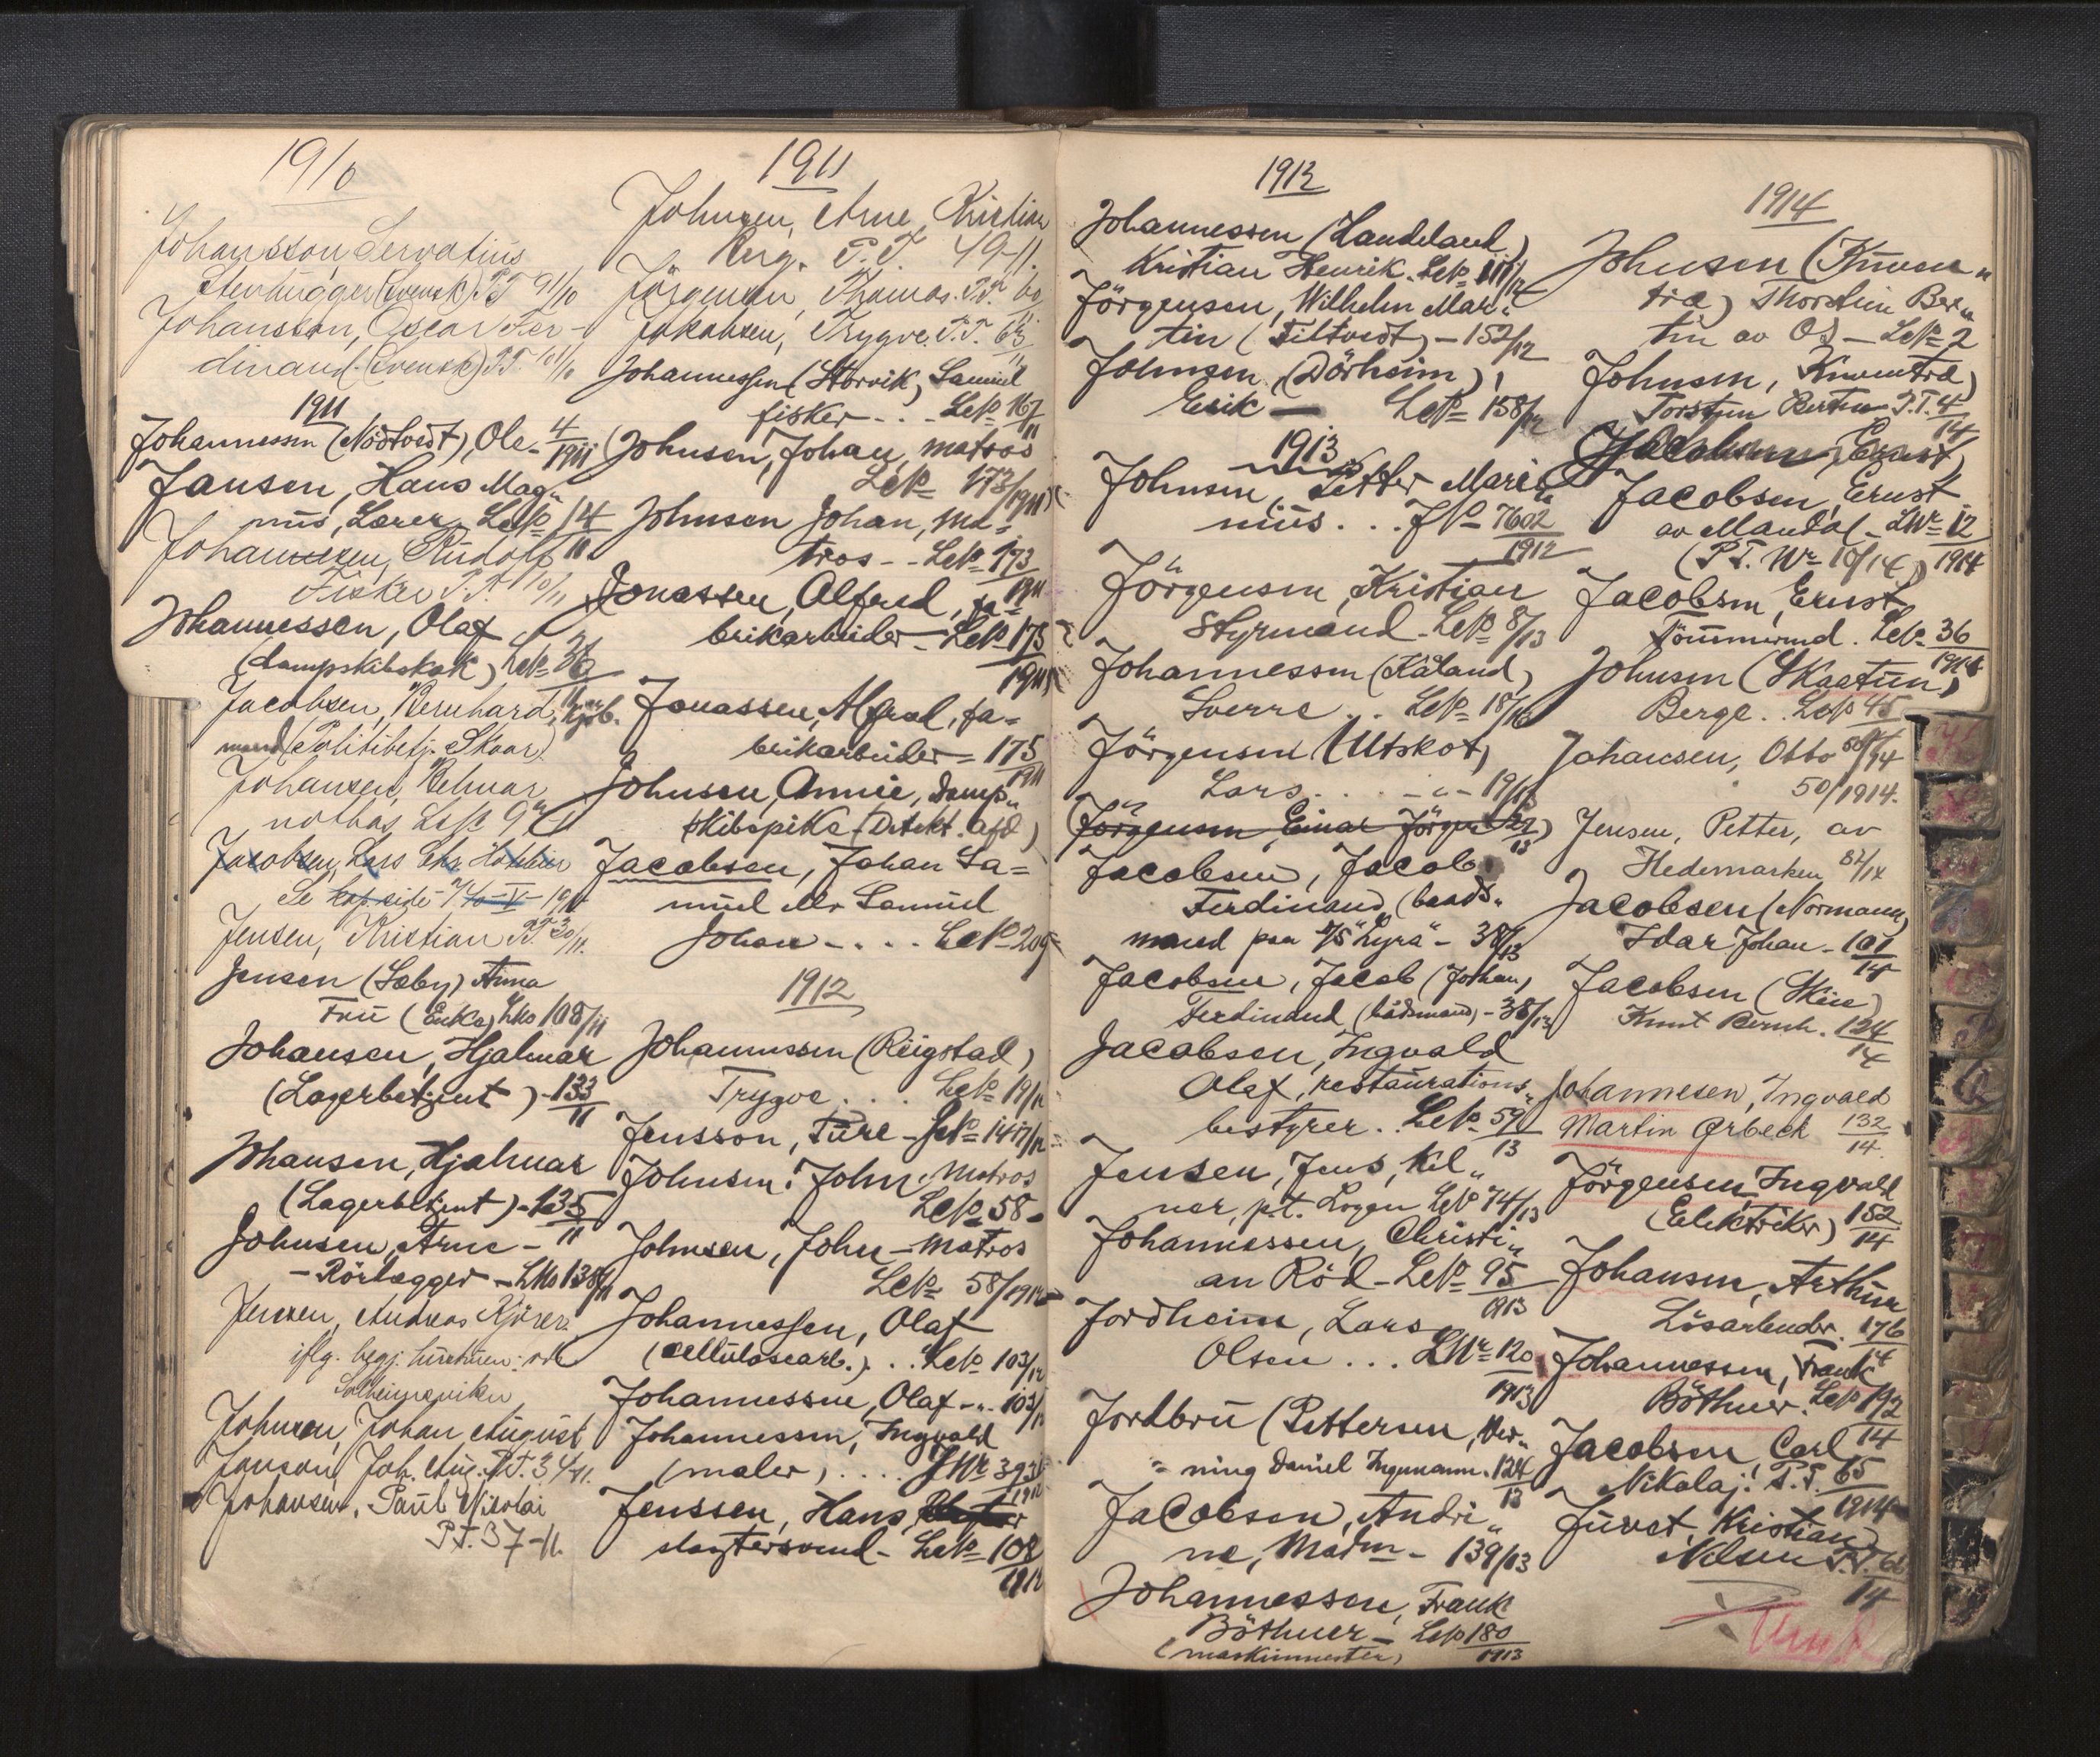 1910
Johansson, Servatius
Stenhugger (svensk) P.T. 91/10
Johansson, Oscar Fer-
dinand (svensk) P.T. 101/10
1911
Johannessen (Nödtvedt), Ole - 4/1911
Jansen, Hans Mag„
nus, Lærer Lep. 14/11
Johannesen, Rudolf
Fisker P.T. 10/11
Johannessen, Olaf
(dampskibskok) Lep. 36/11
Jacobsen, Bernhard,
mand (Politibetj. Skaar)
Johansen, Helmar
Jacobsen, Lars
Se
Jensen, Kristian P.T. 30/11.
Jensen (Sæby) Anna
Frü (Enke) LNo 108/11
Johansen, Hjalmar
(Lagerbetjent) - 133/11
Johansen, Hjalmar
(Lagerbetjent) - 135/11
Johnsen, Arne -
- Rörlægger - LNo 138/11
Jensen, Andreas
Johnsen, Johan August
Janson, Joh. Aug. P.T. 34-11.
Johansen, Paul Nicolai
P.T. 37-11.
1911
Johnsen, Arne Kristian
Berg. P.T. 49-11.
Jörgensen, Thomas. P.T. 60/11
Jakobsen, Trygve. P.T. 63/11
Johannessen (Storvik) Samuel
fisker - . . Lep. 167/11
Johnsen, Johan, matros
Lep. 173/1911
Johnsen Johan, Ma-
tros - - Lep. 173/1911
Jonassen, Alfred, fa-
brikarbeider - Lep. 175/1911
Jonassen, Alfred, fa-
brikarbeider - 175/1911
Johnsen, Annie, Damp„
skibspike (Detekt. afd)
Jacobsen, Johan Sa-
muel elle Samuel
Johan - . . . Lep. 209
1912
Johannessen (Reigstad)
Trygve . . . Lep. 19/12
Jensson, Ture - JNo 1417/12
Johnsen, John, Matros
Lep. 58 -
Johnsen, John - Matros
Lep. 58/1912
Johannessen, Olaf
(Cellulosearb.) . . Lep. 103/12
Johannessen, Olaf - „ - 103/12
Johannessen, Ingvald
(maler) . . . . JNr 3931/1912
Jenssen, Hans,
slagtersvend - Lep. 108/1912
1912
Johannessen (Landeland)
Kristian Henrik. Lep. 111/12
Jörgensen, Wilhelm Mar„
tin (Tiltvedt) - 152/12
Johnsen (Dörheim),
Erik - Lep. 158/12
1913
Johnsen, Petter Mari„
nius . . . JNo 7602/1912
Jörgensen, Kristian
Styrmand - Lep. 8/13
Johannessen (Kåland)
Sverre . . Lep. 18/13
Jörgensen (Utskot)
Lars . . . - „ - 19/13
(Jörgensen, Einar Jörgen 29/13)
Jacobsen, Jacob
Ferdinand (baads„
mand paa S/S "Lyra" - 38/13
Jacobsen, Jacob (Johan)
Ferdinand (bådsmand) - 38/13
Jacobsen, Ingvald
Olaf, restaurations„
bestyrer . Lep. 59/13
Jensen, Jens, Kel„
ner, p.t. Logen Lep. 74/13
Johannessen, Christi„
an Röd - Lep. 95/1913
Jordheim, Lars
Olsen . . . LNr 120/1913
Jordbrü (Pettersen, Wer„
ning Daniel Ingemann. 124/13
Jacobsen, Andri„
ne, Madm - 139/13
Johannessen, Frank
Böthner - Lep. 180/1913
(maskinmester)
1914
Johnsen (Knven„
træ) Thorstein Ber„
tin av Os - Lep. 2
Johnsen, Knventræ)
Torstein Bertin P.T. 4/14
Jacobsen, Ernst
Jacobsen, Ernst
av Mandal - LNr 12/1914
(P.T. Nr 10/14)
Jacobsen, Ernst
Tömmermd. Lep. 36/1914
Johnsen (Skaatun)
Berge . . Lep. 45
Johansen, Otto
50/1914.
Jensen, Petter, av
Hedemarken 82/14
Jacobsen (Normann)
Idar Johan - 101/14
Jacobsen (Skie)
Knut Bernh. 124/14
Johannesen, Ingvald
Martin Ørbeck 132/14.
Jörgensen, Ingvald
(Elektriker) 152/14
Johansen, Arthur
Lösarbeider. 176/14
Johannessen, Frank
Böthner. Lep. 192/14
Jacobsen, Carl
Nikolaj. P.T. 65/1914
Juvet, Kristian
Nilsen P.T. 68/14
Vend